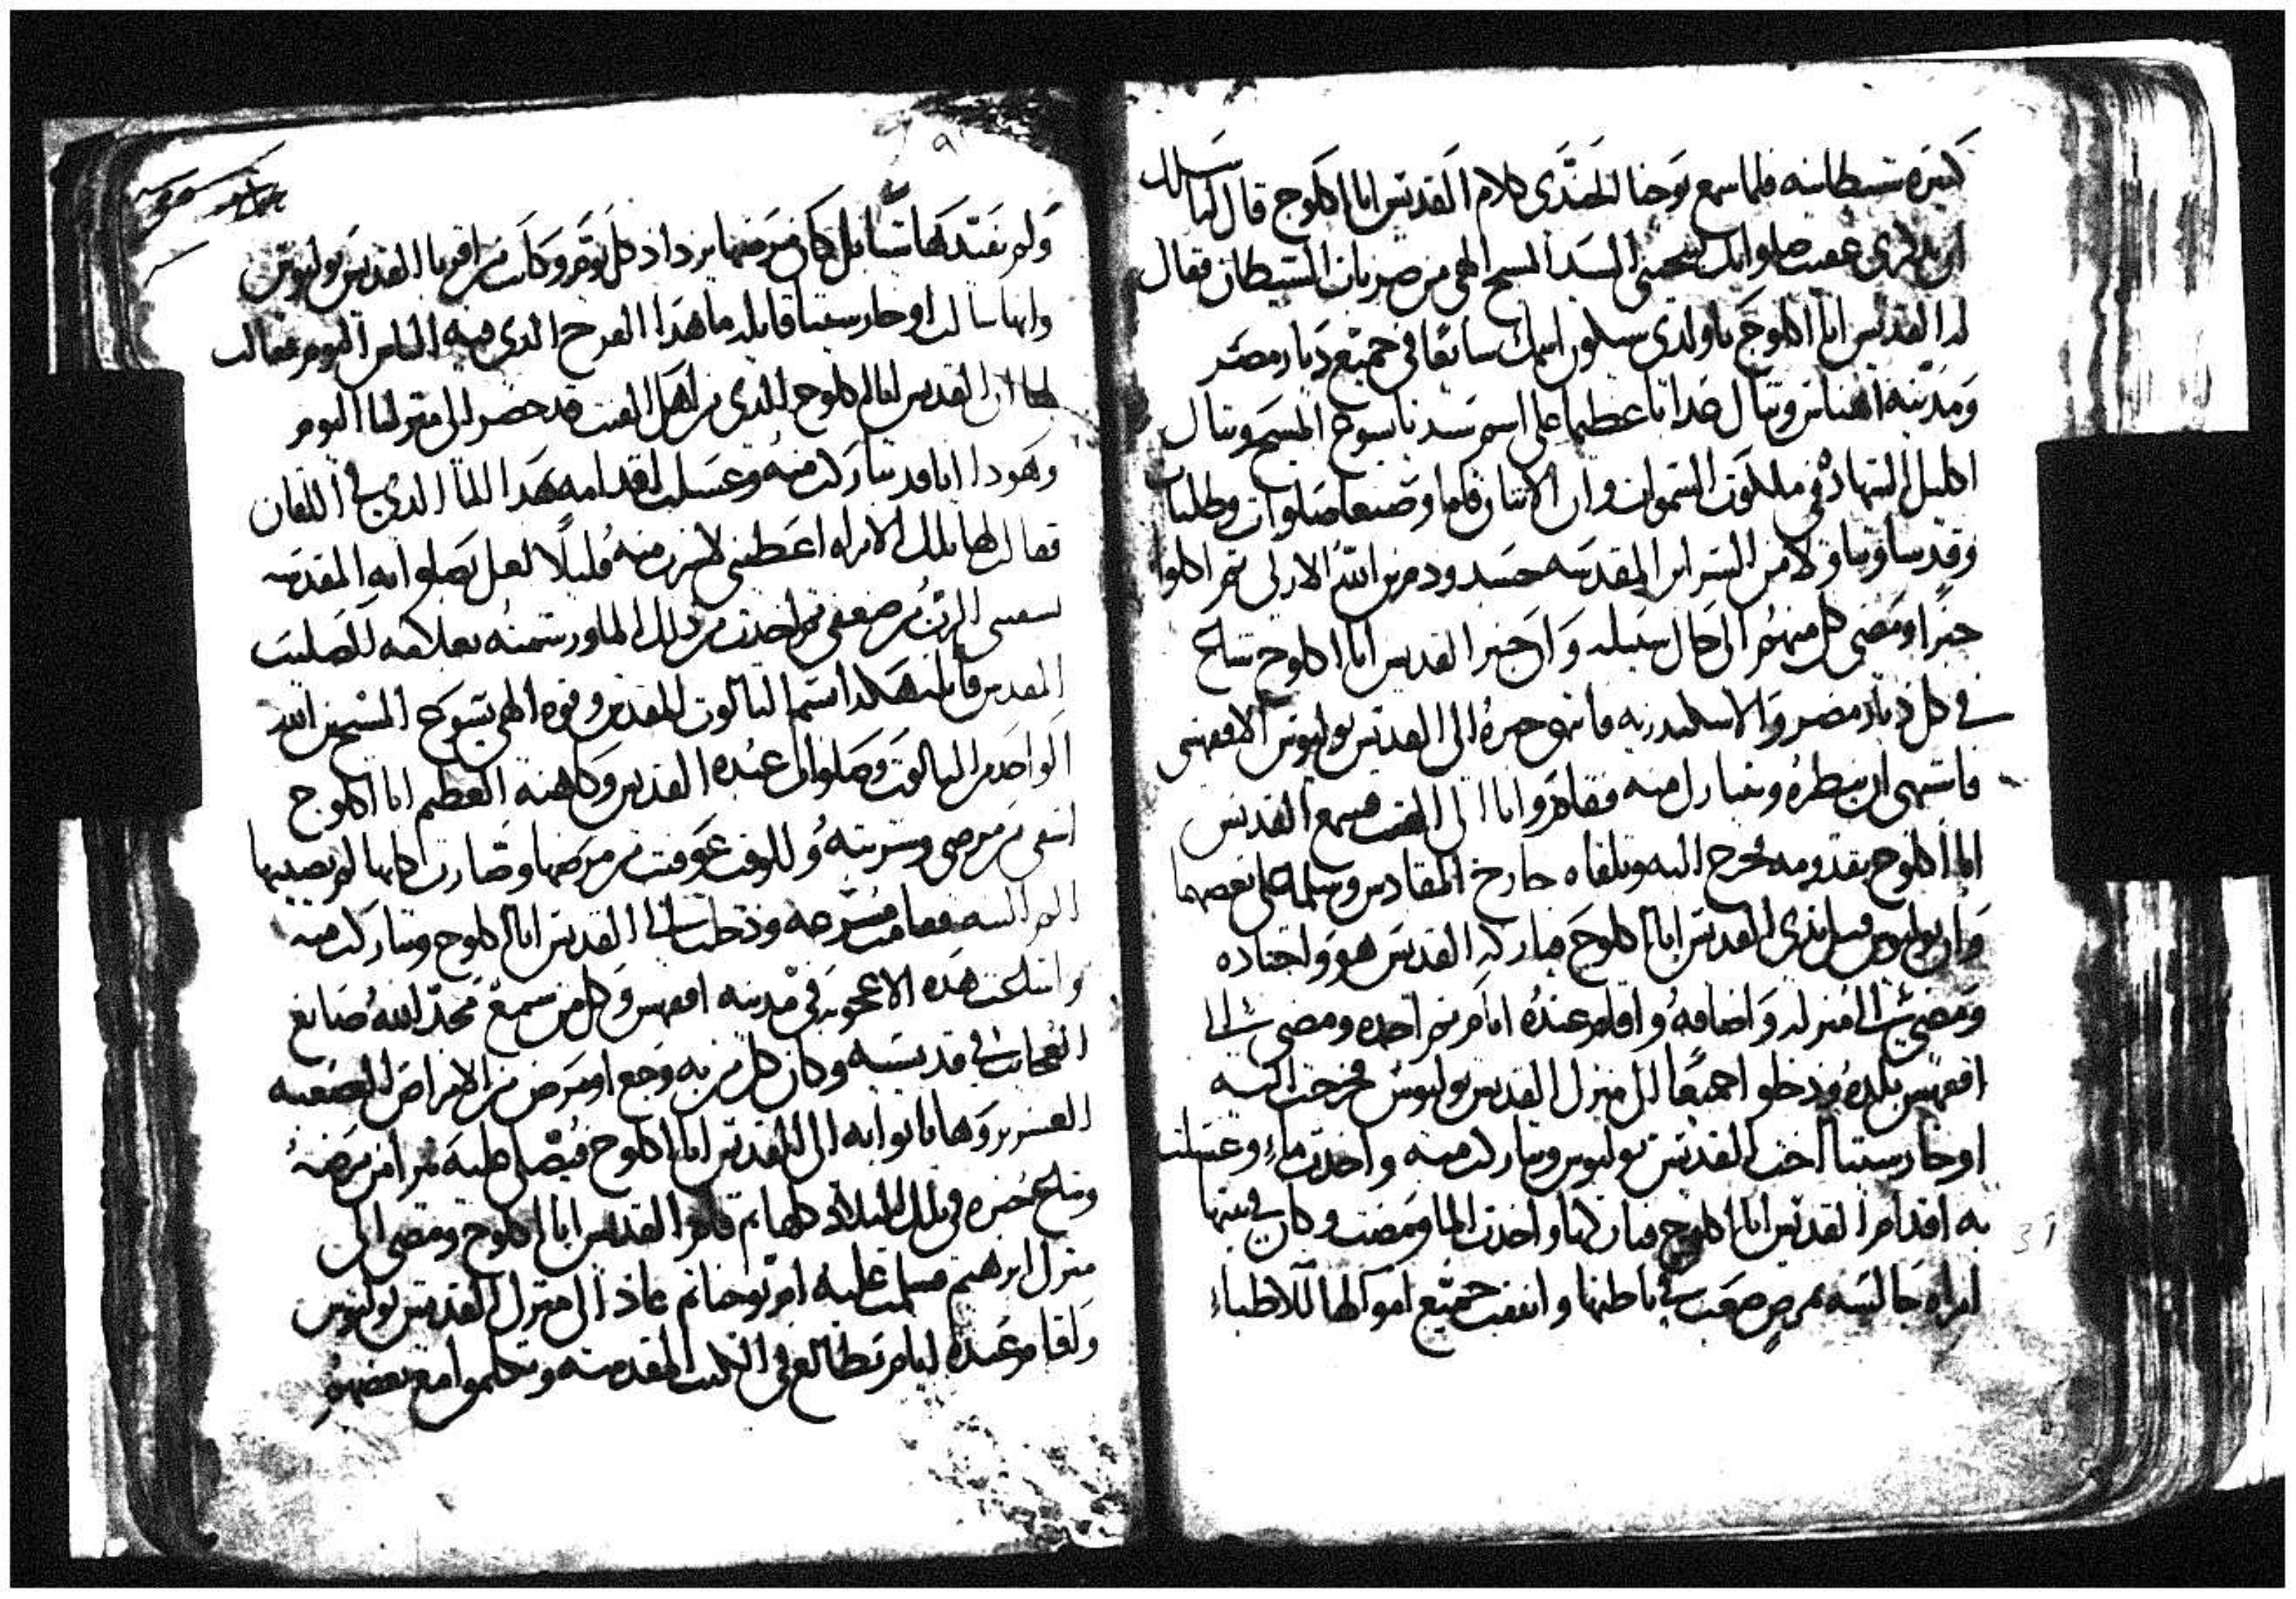 كثيرة شيطانية فلما سمع يوحنا الجندى كلام القديس ابا اكلوج قال له اسالك
ان تذكرنى عقيب صلواتك لينجينى السيد المسيح الاهى من ضربات الشيطان فقال
له القديس ابا اكلوج يا ولدى سيكون اسمك شائعا فى جميع ديار مصر
ومدينة اهناس وتنال عذابا عظيما على اسم سيدنا يسوع المسيح وتنال
اكليل الشهاده فى ملكوت السموات وان الاثنان قاما وصنعا صلوات وطلبات
وقدسا وتناولا من السراير المقدسه جسد ودم ابن الله الازلى ثم اكلوا
خبزا ومضى كل منهم الى حال سبيله وان خبر القديس ابا اكلوج شاع
فى كل ديار مصر والاسكندريه فانتهى خبره الى القديس يوليوس الاقفهسى
فاشتهى ان ينظره ويتبارك منه فقام واتا الى الفنت فسمع القديس
ابا اكلوج بقدومه فخرج اليه وتلقاه خارج المقادس وسلما على بعضهما
وان يوليوس قبل ايدى القديس ابا اكلوج مباركه القديس هو واجناده
ومضى الى منزله واضافه واقام عنده ايام ثم اخده ومضى الى
اقفهس بلده ودخلوا جميعا الى منزل القديس يوليوس فخرجت اليه
اوخارستيا اخت القديس يوليوس وتباركت منه واخدت ماء وغسلت
به اقدام القديس ابا اكلوج فباركها واخدت الما ومضت وكان فى بيتها
امراه جالسه بمرض صعب فى باطنها وانفقت جميع اموالها للاطباء
ولم يفيدها شيا بل كان مرضها يزداد كل يوم وكانت من اقربا القديس يوليوس
وانها سالت اوخارستيا قايله ما هدا الفرح الدى فيه الناس اليوم فقالت
لها ان القديس ابا اكلوج الدى من اهل الفنت قد حضر الى منزلنا اليوم
وهودا انا قد تباركت منه وغسلت اقدامه بهدا الما الدى فى اللقان
فقالت لها تلك الامراه اعطينى لاشرب منه قليلا لعل بصلواته المقدسه
يشفينى الرب من ضعفى ثم اخدت من دلك الما ورشمته بعلامة الصليب
المقدس قايله هكدا باسم التالوت المقدس وقوة الاهى يسوع المسيح ابن الله
الواحد من التالوت وصلوات عبده القديس وكاهنه العظيم ابا اكلوج
اشفى من مرضى وشربته وللوقت عوفيت من مرضها وصارت كانها لم يصيبها
الم البته فقامت مسرعه ودخلت الى القديس ابا اكلوج وتباركت منه
وانتشرت هده الاعجوبه فى مدينه اقفهس وكل من سمع مجد الله صانع
العجايب فى قديسيه وكان كل من به وجع او مرض من الامراض الصعبه
العسر بروها ياتوا به الى القديس ابا اكلوج فيصلى عليه فيبرا من مرضه
وشاع خبره فى تلك البلاد كلها ثم قام القديس ابا اكلوج ومضى الى
منزل ابرهيم فسلمت عليه ام يوحنا ثم عاد الى منزل القديس يوليوس
واقام عنده ايام يطالع فى الكتب المقدسه وتكلموا مع بعضهم